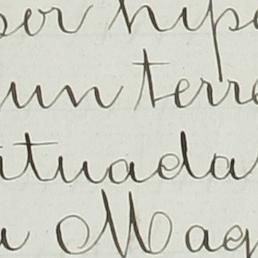 por hipo
un terre
situada
a Mag